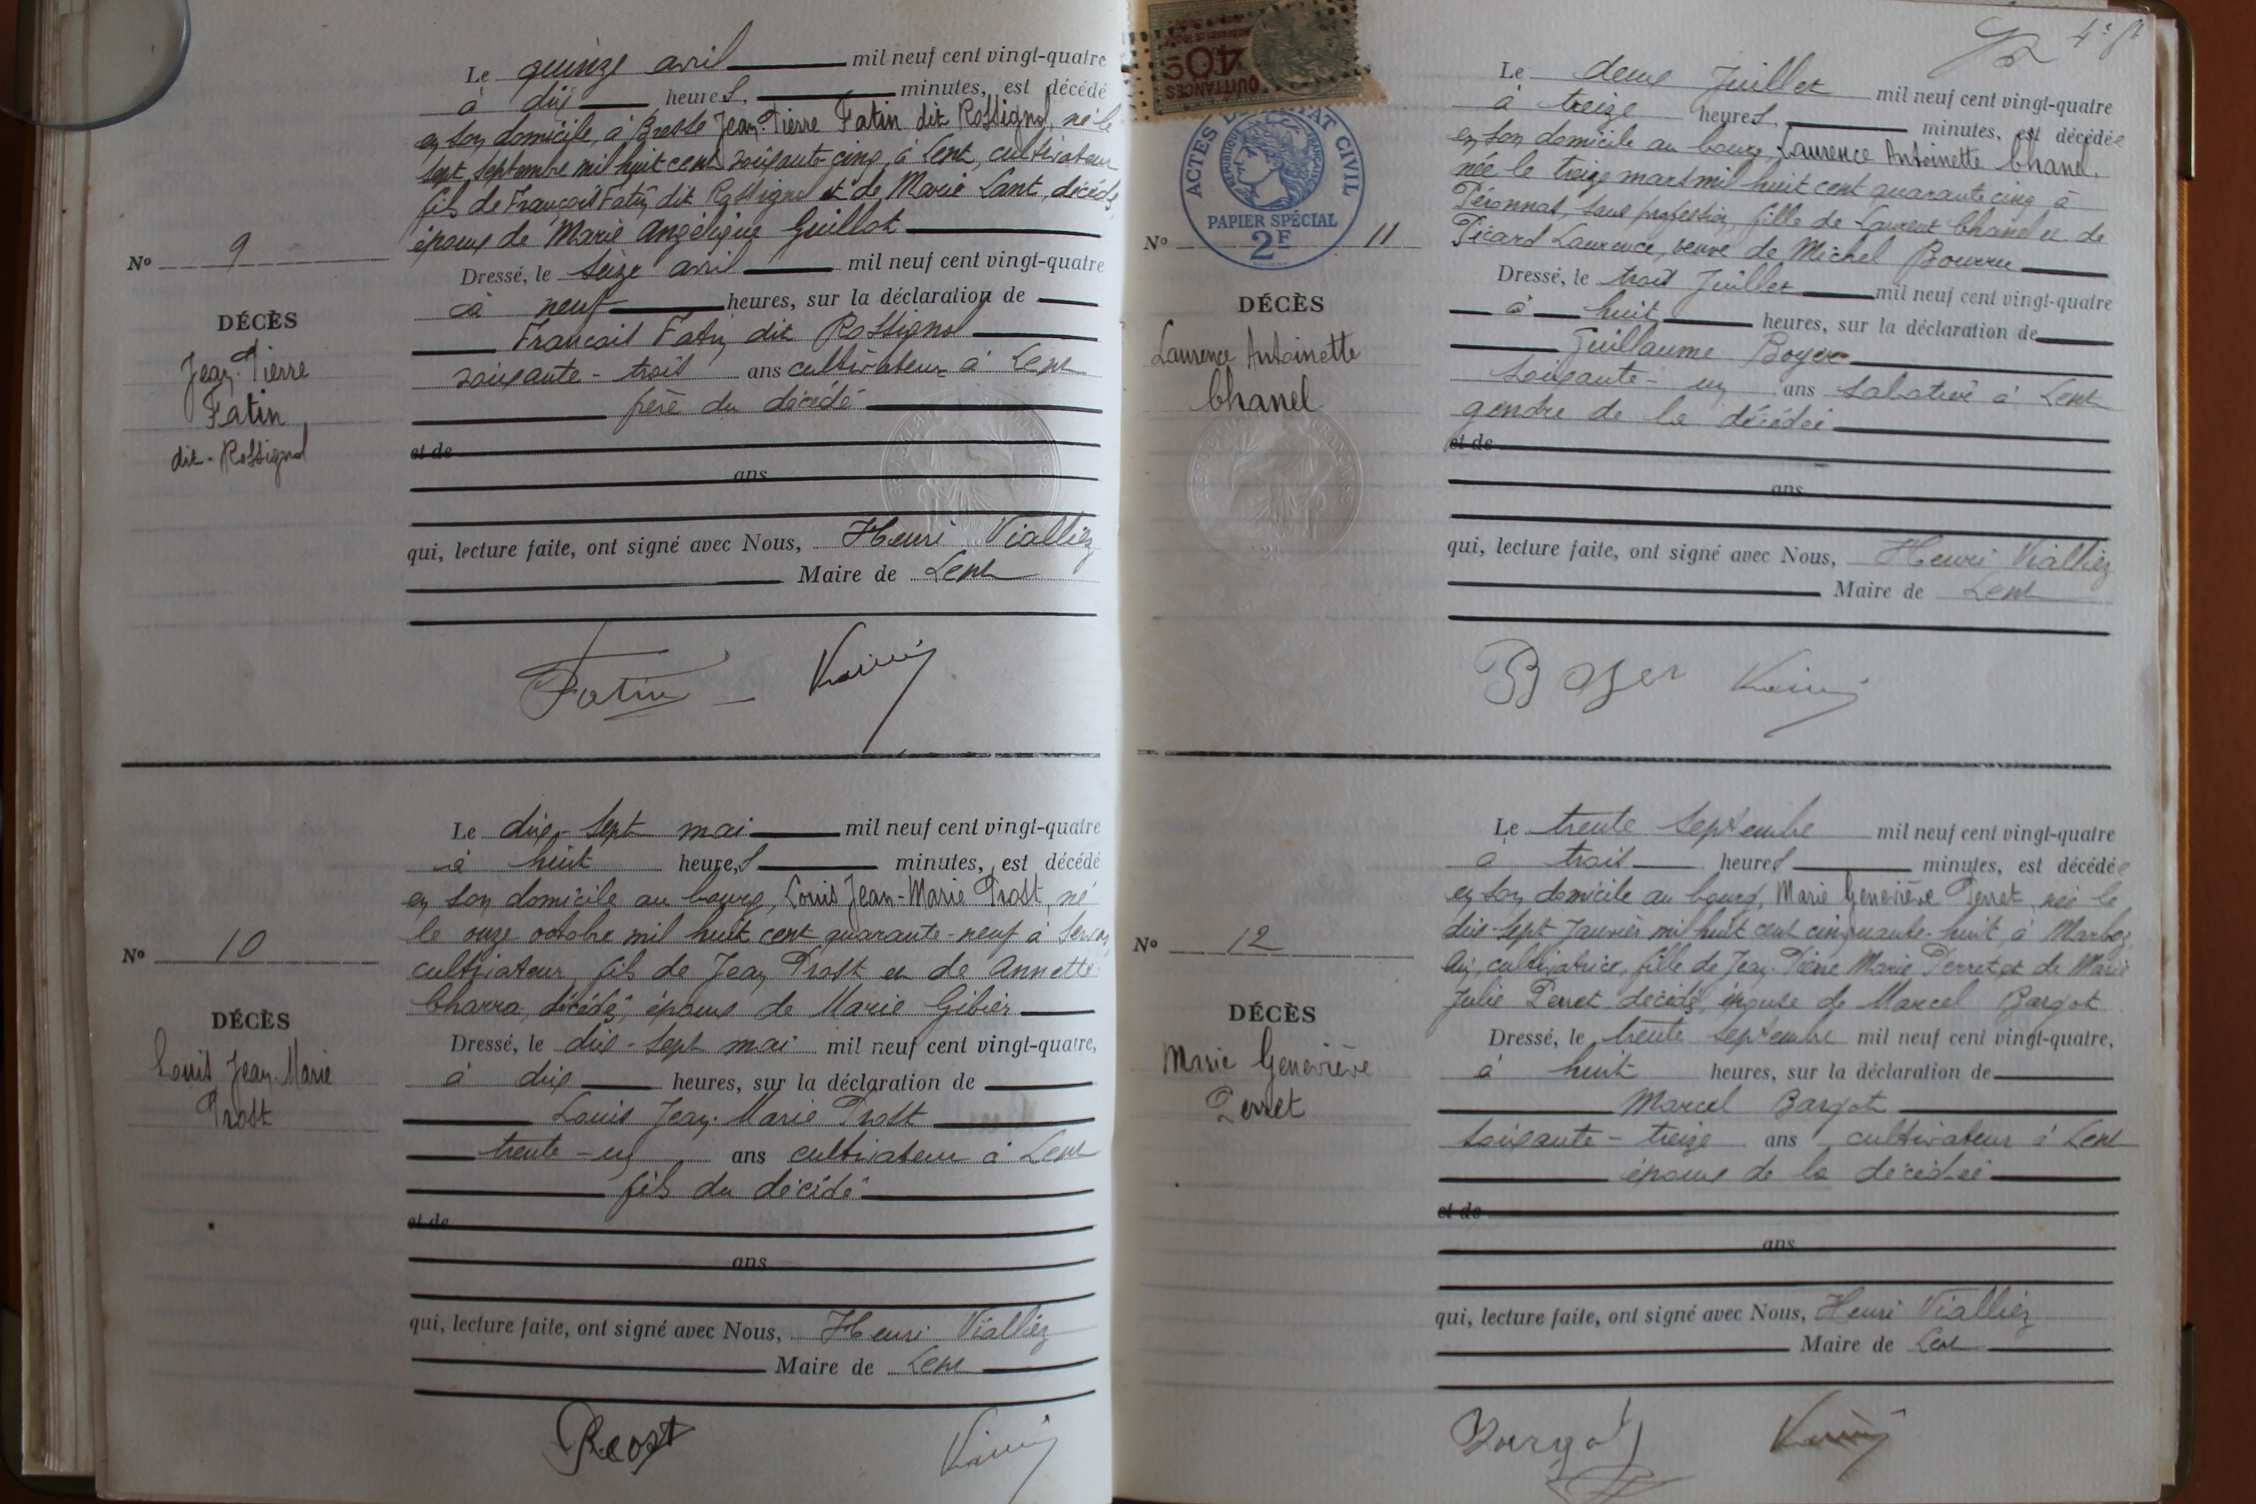 Le quinze avril mil neuf cent vingt-quatre
à dix heures, minutes, est décédé
en son domicile, à Bresse Jean-Pierre Fatin dit Rossignol, né le
sept septembre mil huit cent soixante-cinq, à Lent, cultivateur
fils de François Fatin dit Rossignol et de Marie Lant, décédés,
époux de Marie Angélique Guillot
No 9
Dressé, le seize avril mil neuf cent vingt-quatre
à neuf heures, sur la déclaration de
DÉCÈS
François Fatin dit Rossignol
Jean-Pierre
Fatin
dit-Rossignol
soixante-trois ans cultivateur à Lent
frère du décédé
et de
ans
qui, lecture faite, ont signé avec Nous, Henri Vialliez
Maire de Lent
Fatin
Le dix-sept mai mil neuf cent vingt-quatre
à huit heures minutes, est décédé
en son domicile au bourg, Louis Jean-Marie Prost, né
le onze octobre mil huit cent quarante-neuf à Servas
No 10
cultivateur, fils de Jean Prost et de Annette
Charra, décédés, époux de Marie Gibier
DÉCÈS
Louis Jean-Marie
Prost
Dressé, le dix-sept mai mil neuf cent vingt-quatre,
à dix heures, sur la déclaration de
Louis Jean-Marie Prost
trente-un ans cultivateur à Lent
fils du décédé
et de
ans
qui, lecture faite, ont signé avec Nous, Henri Vialliez
Maire de Lent
Prost
QUITTANCES
40c
ACTES DE L'ETAT CIVIL
REPUBLIQUE FRANÇAISE
PAPIER SPÉCIAL
2F
4e ft
Le deux Juillet mil neuf cent vingt-quatre
à treize heures, minutes, est décédée
en son domicile au bourg, Laurence Antoinette Chanel,
née le treize mars mil huit cent quarante cinq à
Péronnas, sans profession, fille de Laurent Chanel et de
Picard Laurence, veuve de Michel Bourru
No 11
DÉCÈS
Laurence Antoinette
Chanel
Dressé, le trois Juillet mil neuf cent vingt-quatre
à huit heures, sur la déclaration de
Guillaume Boyer
soixante-un ans sabotier à Lent
gendre de la décédée
et de
ans
qui, lecture faite, ont signé avec Nous, Henri Vialliez
Maire de Lent
Boyer
Le trente septembre mil neuf cent vingt-quatre
à trois heures minutes, est décédée
en son domicile au bourg, Marie Geneviève Perret, née le
dix-sept Janvier mil huit cent cinquante-huit, à Marboz
Ain, cultivatrice, fille de Jean-Pierre Marie Perret et de Marie
Julie Perret décédés, épouse de Marcel Bargot
No 12
DÉCÈS
Marie Geneviève
Perret
Dressé, le trente septembre mil neuf cent vingt-quatre,
à huit heures, sur la déclaration de
Marcel Bargot
soixante-treize ans cultivateur à Lent
époux de la décédée
et de
ans
qui, lecture faite, ont signé avec Nous, Henri Vialliez
Maire de Lent
Bargot